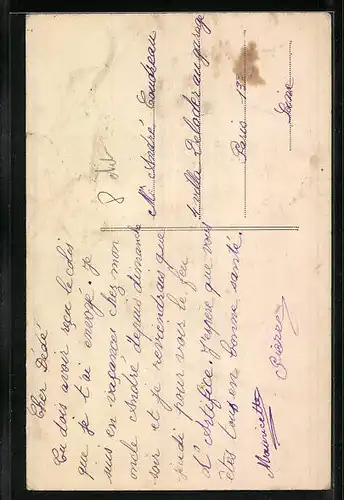 Cher Dédé
Tu dois avoir reçu le colis
que je t'ai envoyé. Je
suis en vacances chez mon
oncle André depuis dimanche
soir et je reviendrais que
jeudi pour voir le feu
d'Artifice. J'espère que vous
êtes tous en bonne santé.
Mauricette Pierre
Mr André
4 villa Deloder au garage
Paris 13e
Seine